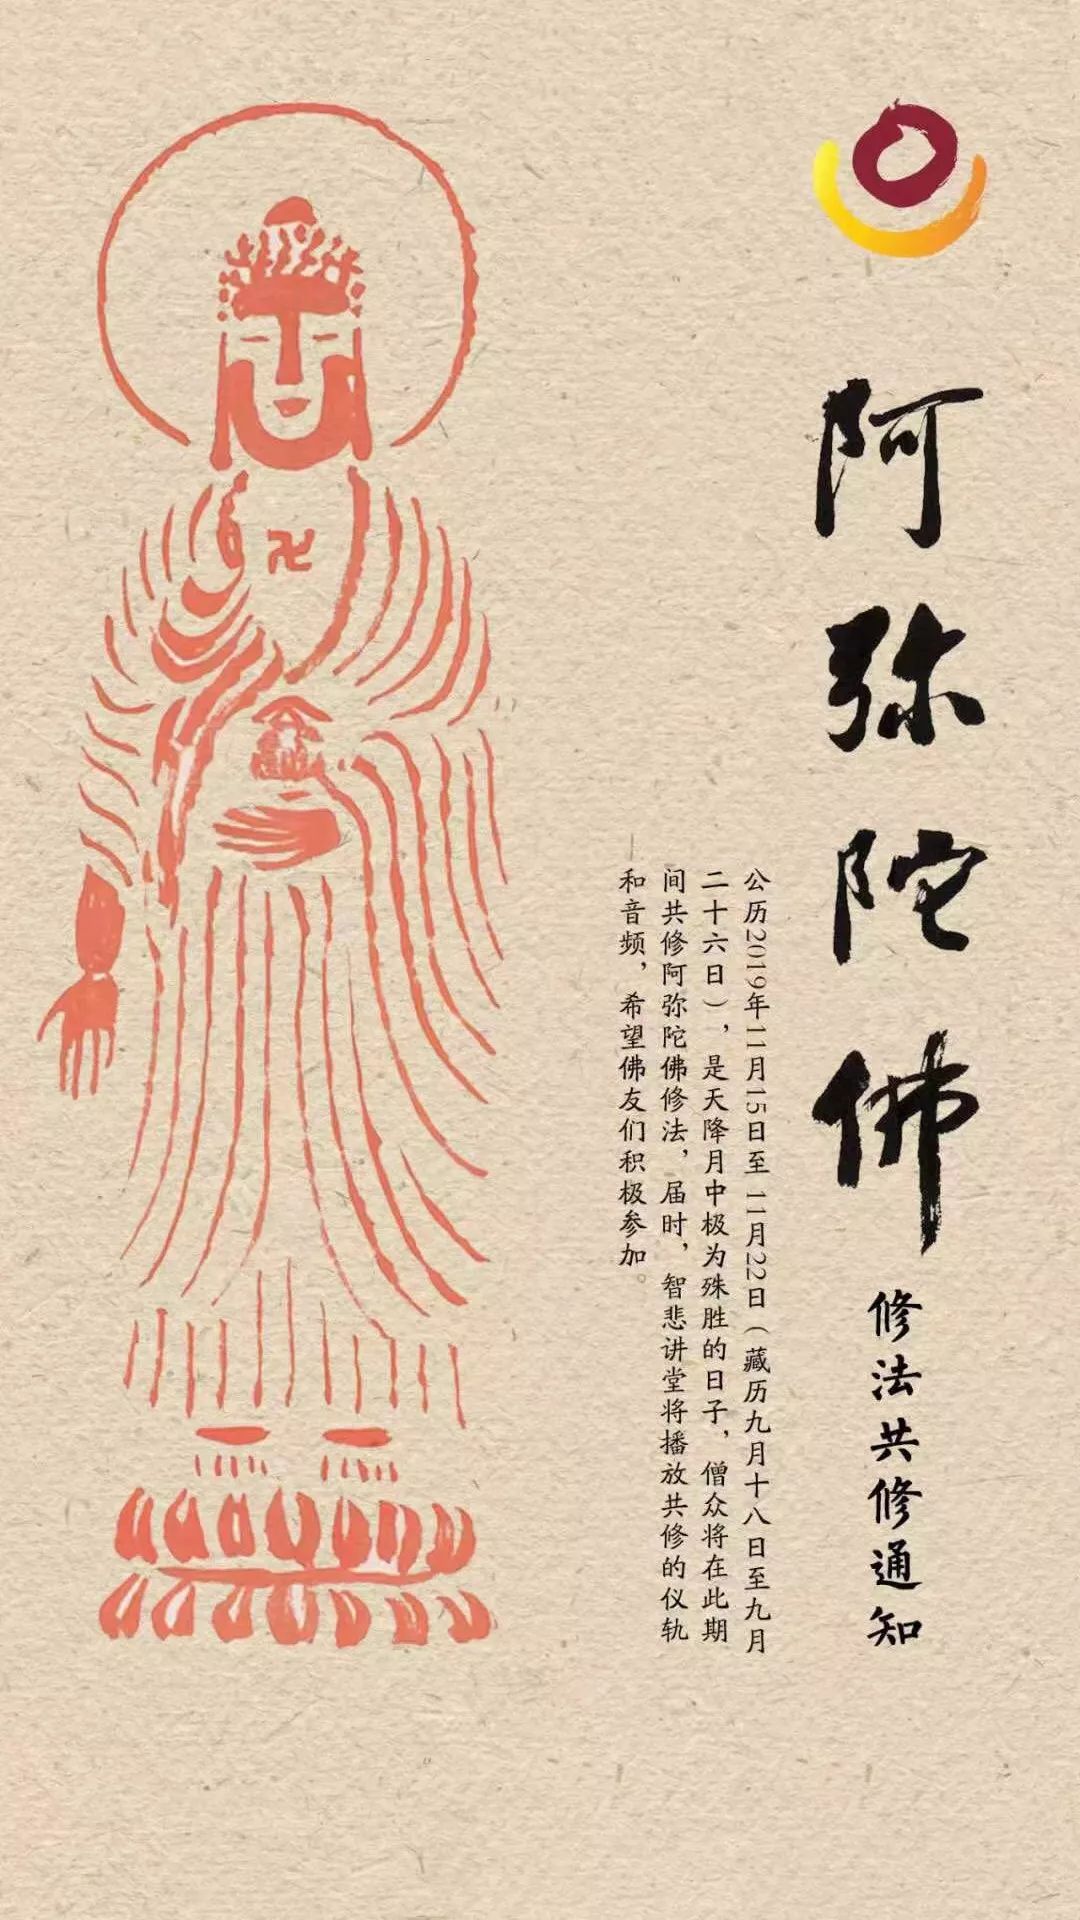 阿弥陀佛
修法共修通知
公历2019年11月15日至 11月22日（藏历九月十八日至九月
二十六日），是天降月中极为殊胜的日子，僧众将在此期
间共修阿弥陀佛修法，届时，智悲讲堂将播放共修的仪轨
和音频，希望佛友们积极参加。